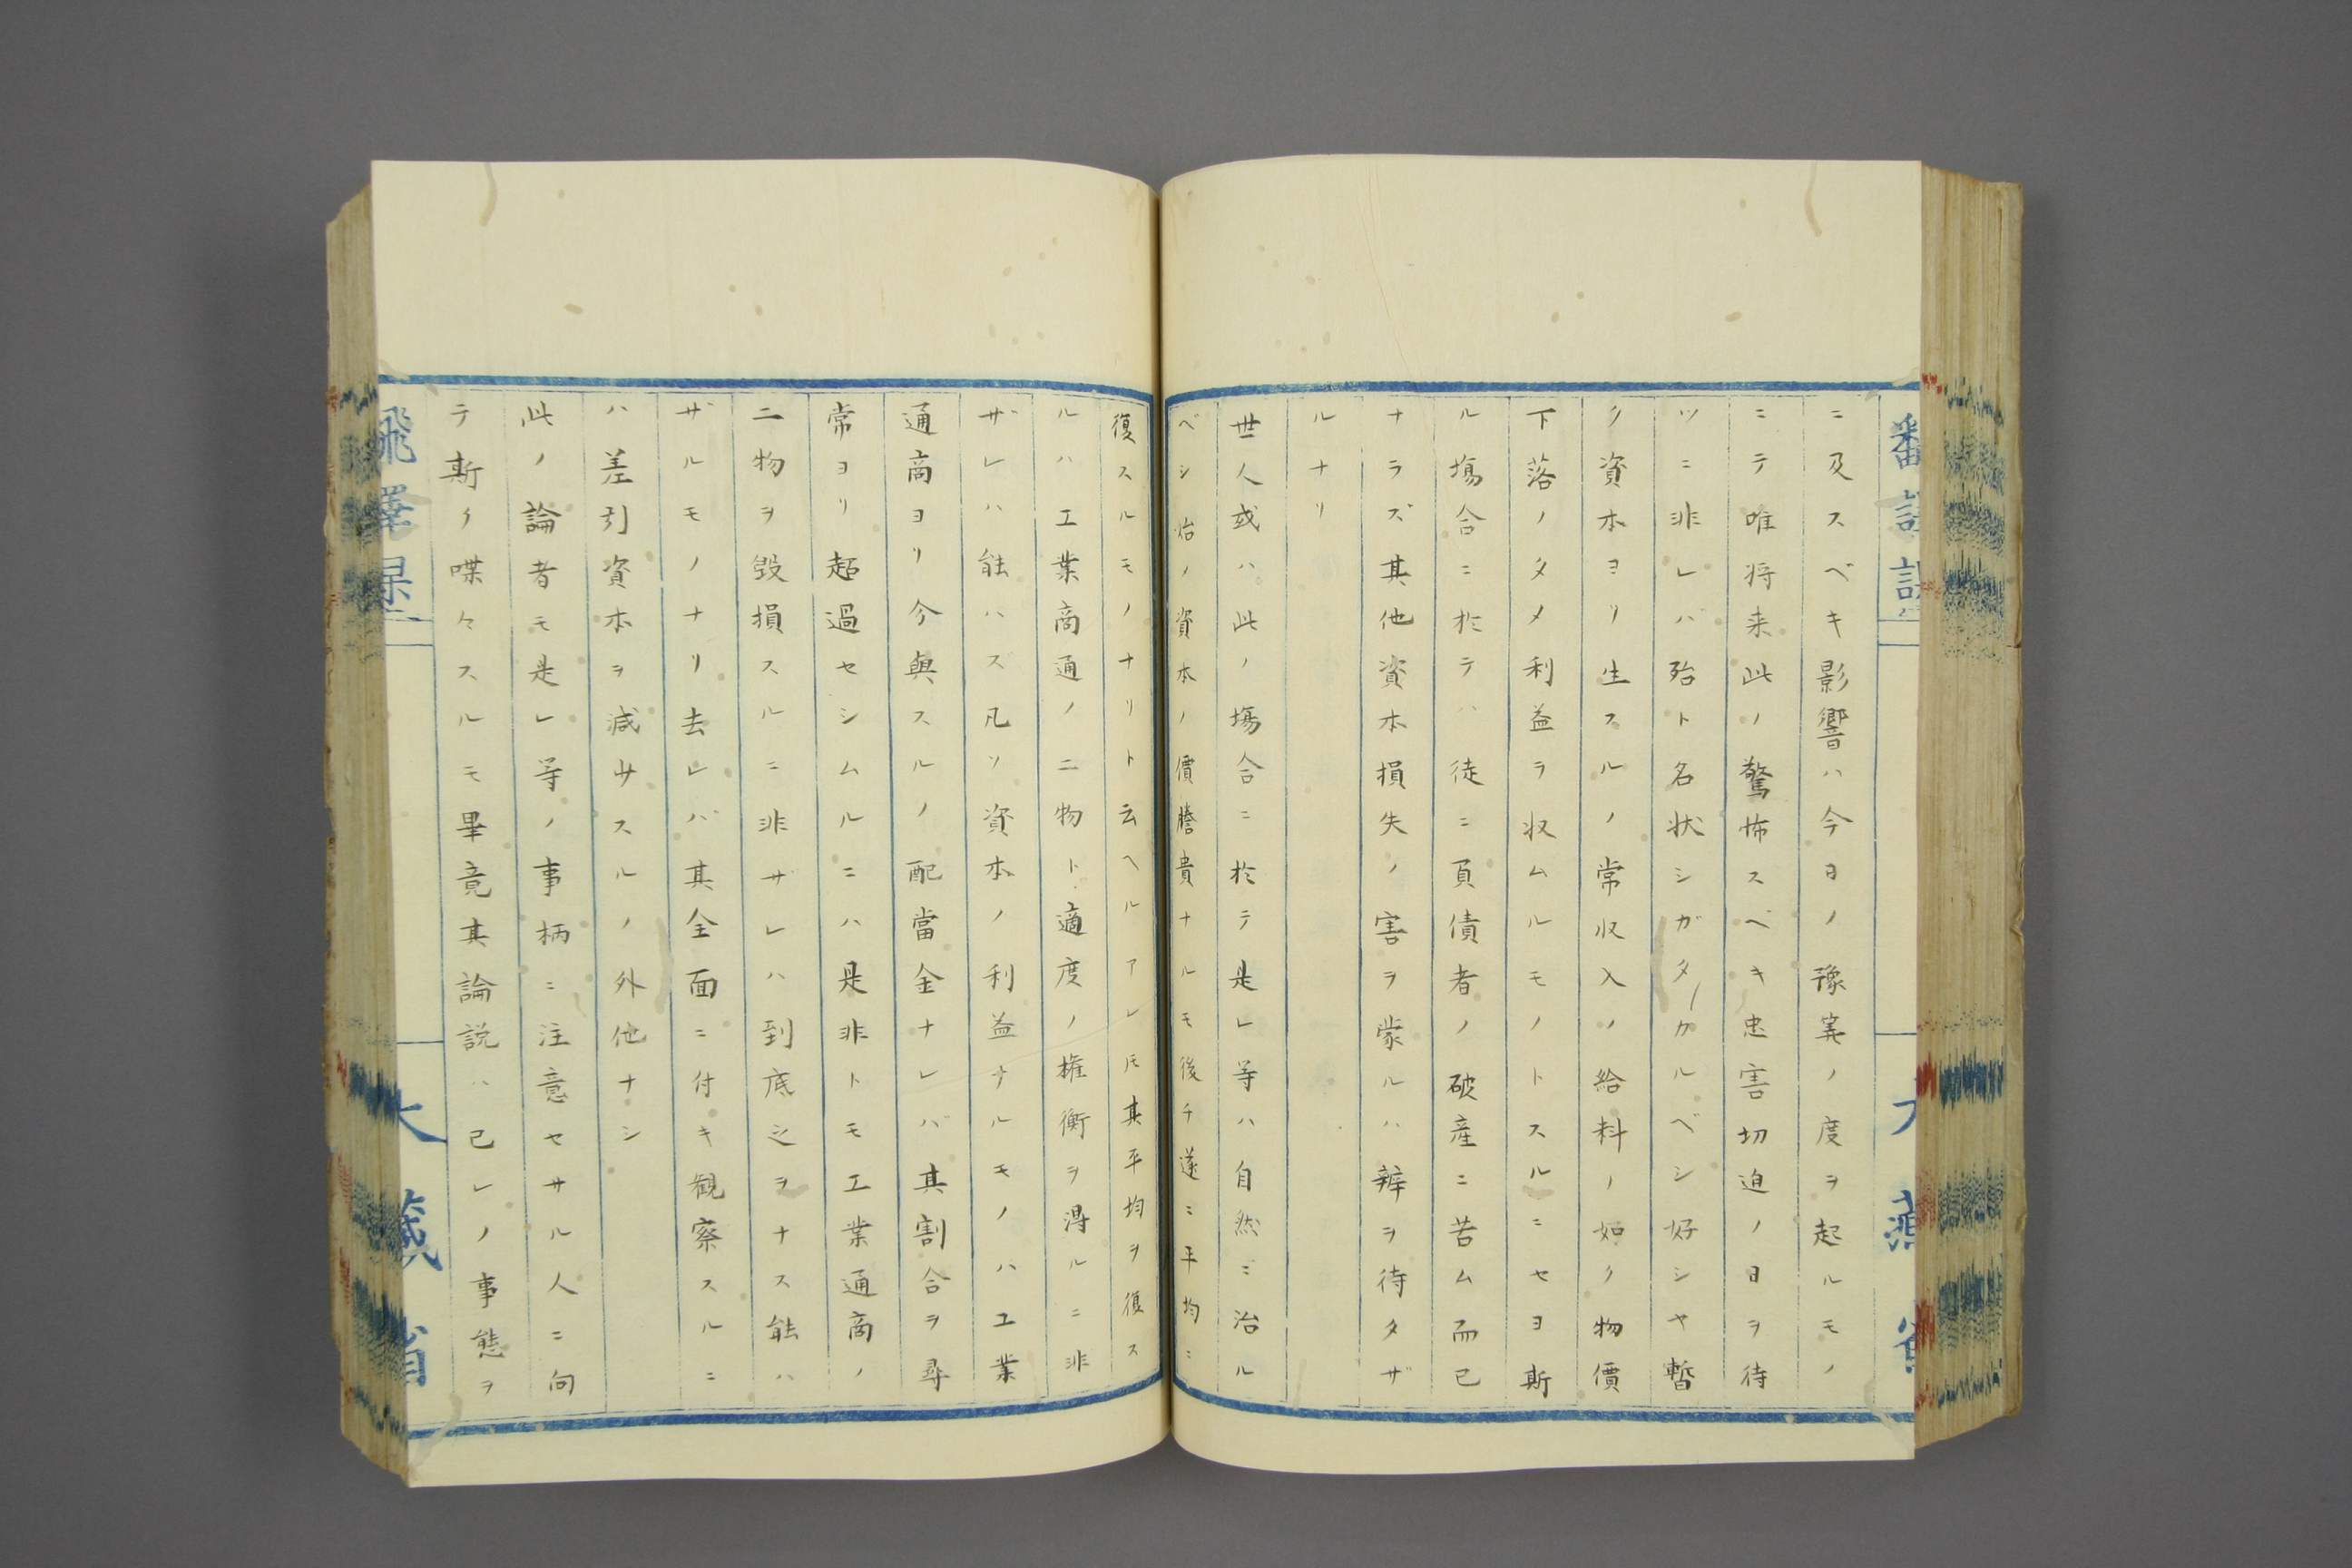 ニ及スベキ影響ハ今日ノ豫筭ノ度ヲ起ルモノ
ニテ唯将来此ノ驚怖スベキ忠害切迫ノ日ヲ待
ツニ非レバ殆ト名状シガタカルベシ好シヤ暫
ク資本ヨリ生スルノ常収入ノ給料ノ如ク物價
下落ノタメ利益ヲ収ムルモノトスルニセヨ斯
ル塲合ニ於テハ徒ニ頁債者ノ破産ニ苦ム而已
ナラズ其他資本損失ノ害ヲ蒙ルハ辨ヲ待タザ
ルナリ
世人或ハ此ノ塲合ニ於テ是レ等ハ自然ニ治ル
ベシ始ノ資本ノ價騰貴ナルモ後チ遂ニ平均ニ
復スルモノナリト云ヘルアレ𪜈其平均ヲ復ス
ルハ工業商通ノ二物ト適度ノ権衡ヲ得ルニ非
ザレハ能ハズ凡ソ資本ノ利益ナルモノハ工業
通商ヨリ分與スルノ配當金ナレバ其割合ヲ尋
常ヨリ超過セシムルニハ是非トモ工業通商ノ
二物ヲ毀損スルニ非ザレハ到底之ヲナス能ハ
ザルモノナリ去レバ其全面ニ付キ観察スルニ
ハ差引資本ヲ減サスルノ外他ナシ
此ノ論者モ是レ等ノ事柄ニ注意セサル人ニ向
テ斯ク喋々スルモ畢竟其論説ハ己レノ事態ヲ
飛譯課
大藏省